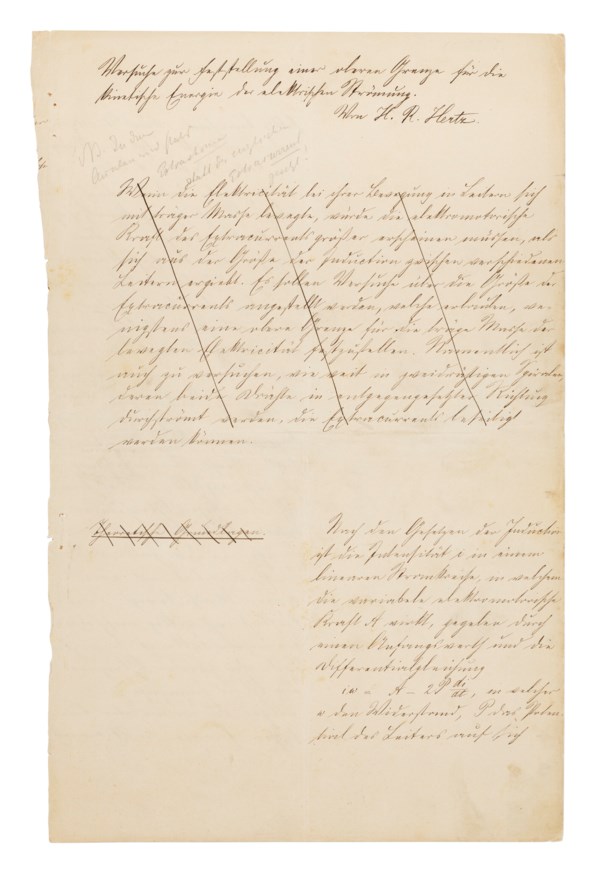 Versuche zur Feststellung einer oberen Grenze für die
kinetische Energie der elektrischen Strömung.
Von H. R. Hertz.
NB. In der
und stets
Extrastrom
statt des englischen
Extracurrent
Wenn die Elektricität bei ihrer Bewegung in Leitern sich
mit träger Masse bewegte, würde die elektromotorische
Kraft des Extracurrents größer erscheinen müssen, als
sich aus der Größe der Induction zwischen verschiedenen
Leitern ergiebt. Es sollen Versuche über die Größe der
Extracurrents angestellt werden, welche erlauben, we-
nigstens eine obere Grenze für die träge Masse der
bewegten Elektricität festzustellen. Namentlich ist
auch zu versuchen, wie weit in zweidrähtigen Spiralen,
deren beide Drähte in entgegengesetzter Richtung
durchströmt werden, die Extracurrents beseitigt
werden können.
Nach den Gesetzen der Induction
ist die Intensität i in einem
linearen Stromkreise, in welchem
die variabele elektromotorische
Kraft A wirkt, gegeben durch
einen Anfangswerth und die
Differentialgleichung
iw = A − 2P di/dt, in welcher
w den Widerstand, P das Poten-
tial des Leiters auf sich